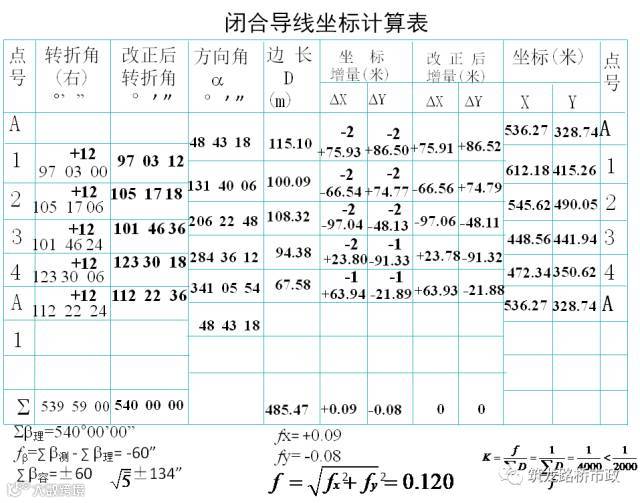 闭合导线坐标计算表
点号 转折角(右) ° ′ ″ 改正后转折角 ° ′ ″ 方向角 α ° ′ ″ 边 长 D (m) 坐 标 增量(米) 改 正 后 增量(米) 坐标(米) 点号
ΔX ΔY ΔX ΔY X Y
A 536.27 328.74 A
48 43 18 115.10 -2 +75.93 -2 +86.50 +75.91 +86.52
1 +12 97 03 00 97 03 12 612.18 415.26 1
131 40 06 100.09 -2 -66.54 -2 +74.77 -66.56 +74.79
2 +12 105 17 06 105 17 18 545.62 490.05 2
206 22 48 108.32 -2 -97.04 -2 -48.13 -97.06 -48.11
3 +12 101 46 24 101 46 36 448.56 441.94 3
284 36 12 94.38 -2 +23.80 -1 -91.33 +23.78 -91.32
4 +12 123 30 06 123 30 18 472.34 350.62 4
341 05 54 67.58 -1 +63.94 -1 -21.89 +63.93 -21.88
A +12 112 22 24 112 22 36 536.27 328.74 A
48 43 18
1
Σ 539 59 00 540 00 00 485.47 +0.09 -0.08 0 0
Σβ理=540°00′00″ fx= +0.09
fβ=Σβ测 - Σβ理= -60″ fy= -0.08
Σβ容=±60 √5 ±134″ f = √fx²+ fy² = 0.120
K = f/ΣD = 1/ΣD/f = 1/4000 < 1/2000
筑龙路桥市政
大数跨境